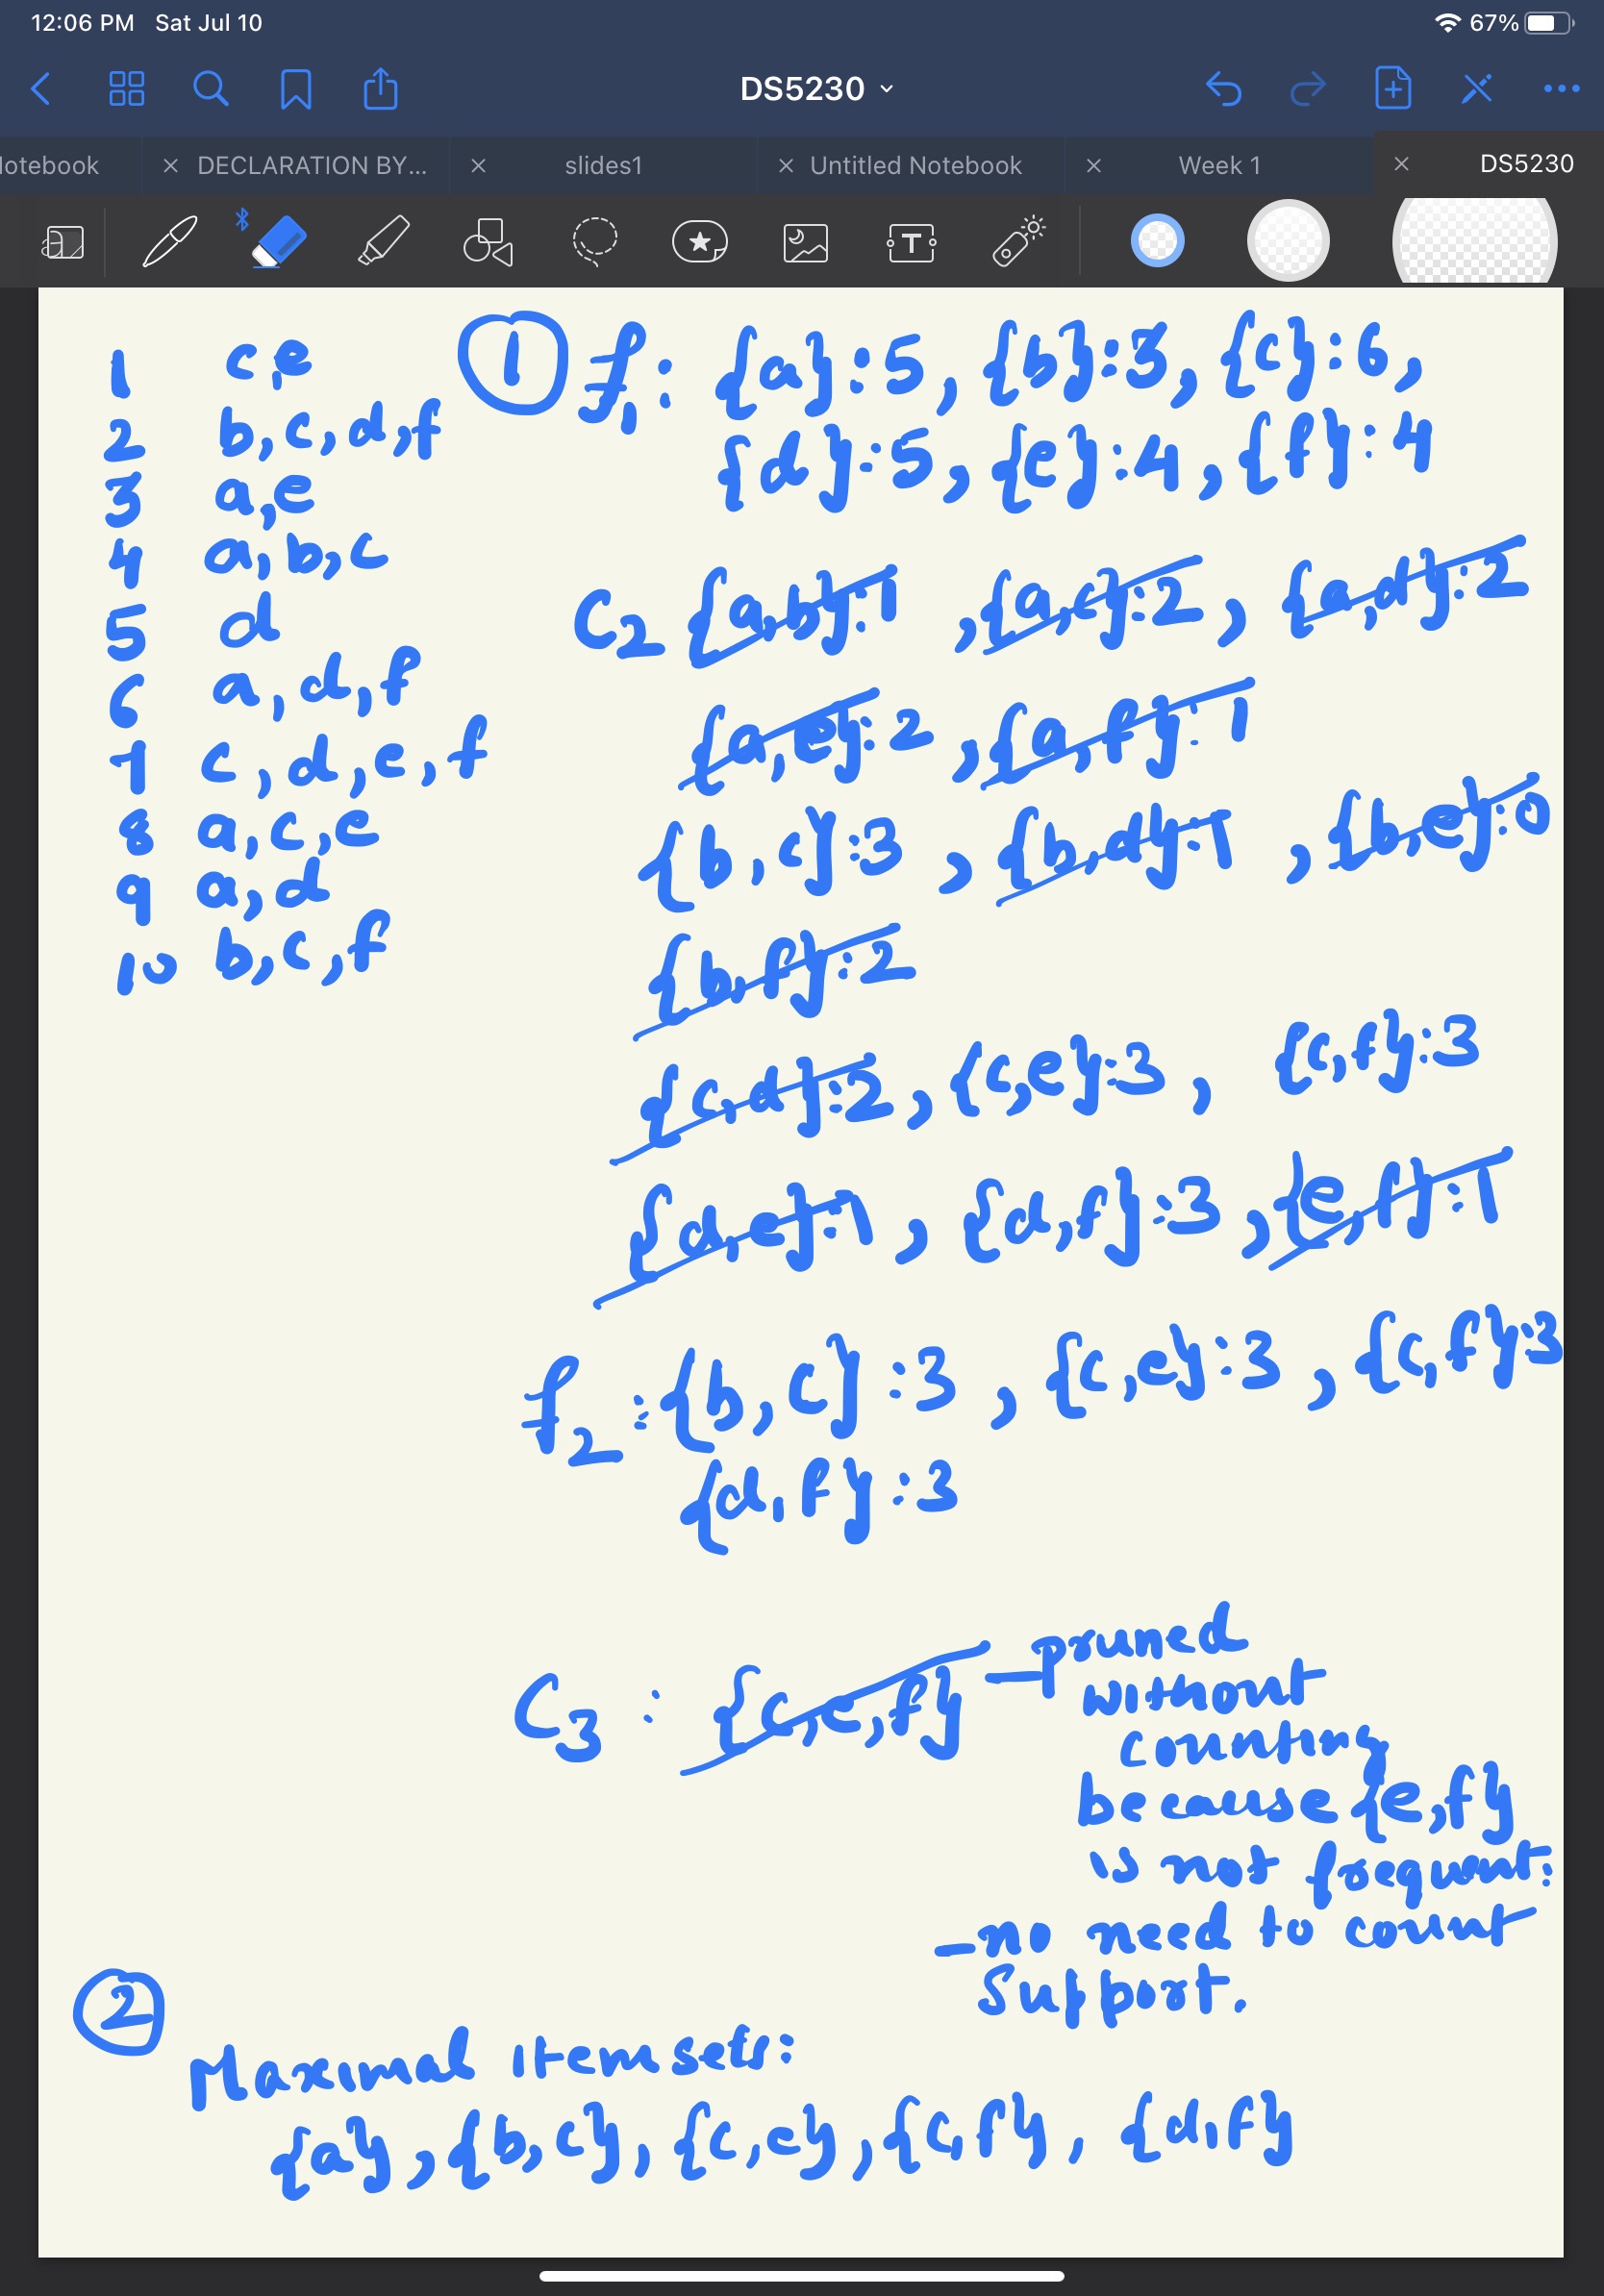 12:06 PM Sat Jul 10
67%
DS5230
Notebook
DECLARATION BY...
slides1
Untitled Notebook
Week 1
DS5230
1 c,e
2 b,c,d,f
3 a,e
4 a,b,c
5 d
6 a,d,f
7 c,d,e,f
8 a,c,e
9 a,d
10 b,c,f
① f₁: {a}:5, {b}:3, {c}:6,
{d}:5, {e}:4, {f}:4
C₂ {a,b}:1, {a,c}:2, {a,d}:2
{a,e}:2, {a,f}:1
{b,c}:3, {b,d}:1, {b,e}:0
{b,f}:2
{c,d}:2, {c,e}:3, {c,f}:3
{d,e}:1, {d,f}:3, {e,f}:1
f₂: {b,c}:3, {c,e}:3, {c,f}:3
{d,f}:3
C₃: {c,e,f} – pruned
without
counting
because {e,f}
is not frequent.
– no need to count
support.
②
Maximal itemsets:
{a}, {b,c}, {c,e}, {c,f}, {d,f}